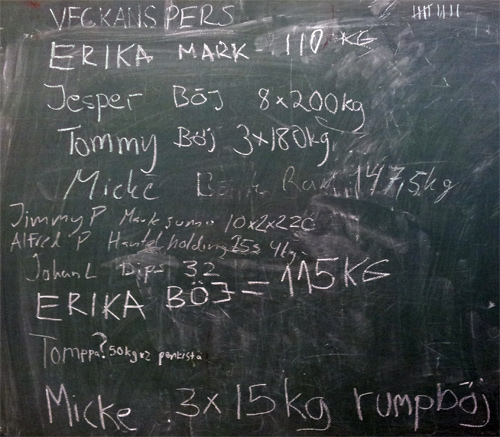 VECKANS PERS
ERIKA MARK - 110 KG
Jesper Böj 8x200kg
Tommy Böj 3x180kg
Micke Bänk Rak 147,5kg
Jimmy P Mark sumo 10x2x220
Alfred P Hantel holding 25s 4kg
Johan L Dips 32
ERIKA BÖJ = 115 KG
Tomppa? 50kg x2 penkistä
Micke 3x15kg rumpböj